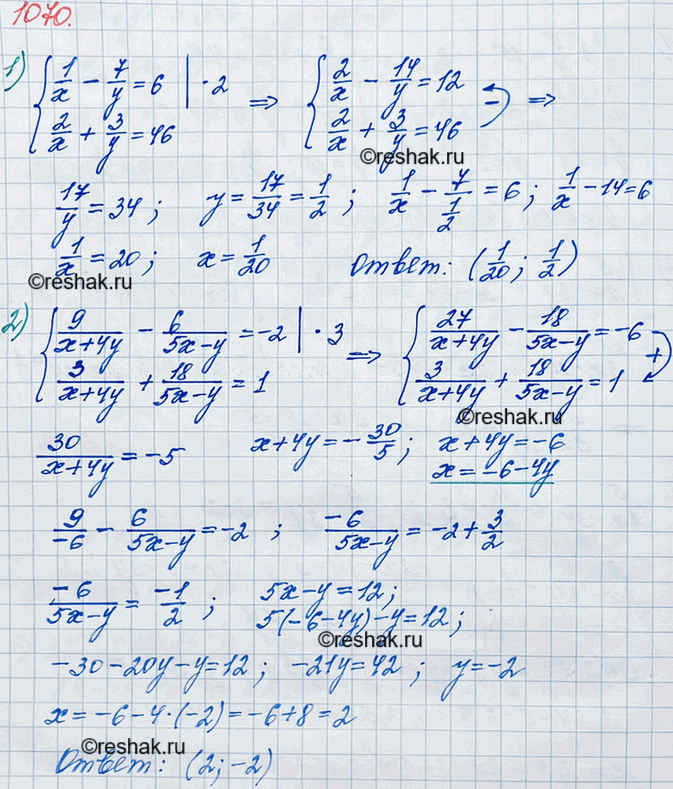 1070.
1) { 1/x - 7/y = 6 | · 2 ⇒ { 2/x - 14/y = 12 ⇒
2/x + 3/y = 46 2/x + 3/y = 46 -
©reshak.ru
17/y = 34 ; y = 17/34 = 1/2 ; 1/x - 7/(1/2) = 6 ; 1/x - 14 = 6
1/x = 20 ; x = 1/20 Ответ: (1/20 ; 1/2)
©reshak.ru
2) { 9/(x+4y) - 6/(5x-y) = -2 | · 3 ⇒ { 27/(x+4y) - 18/(5x-y) = -6
3/(x+4y) + 18/(5x-y) = 1 3/(x+4y) + 18/(5x-y) = 1 +
©reshak.ru
30/(x+4y) = -5 x+4y = -30/5 ; x+4y = -6
x = -6-4y
9/-6 - 6/(5x-y) = -2 ; -6/(5x-y) = -2 + 3/2
-6/(5x-y) = -1/2 ; 5x-y = 12 ;
5(-6-4y)-y = 12 ;
©reshak.ru
-30-20y-y = 12 ; -21y = 42 ; y = -2
x = -6-4·(-2) = -6+8 = 2
©reshak.ru
Ответ: (2 ; -2)